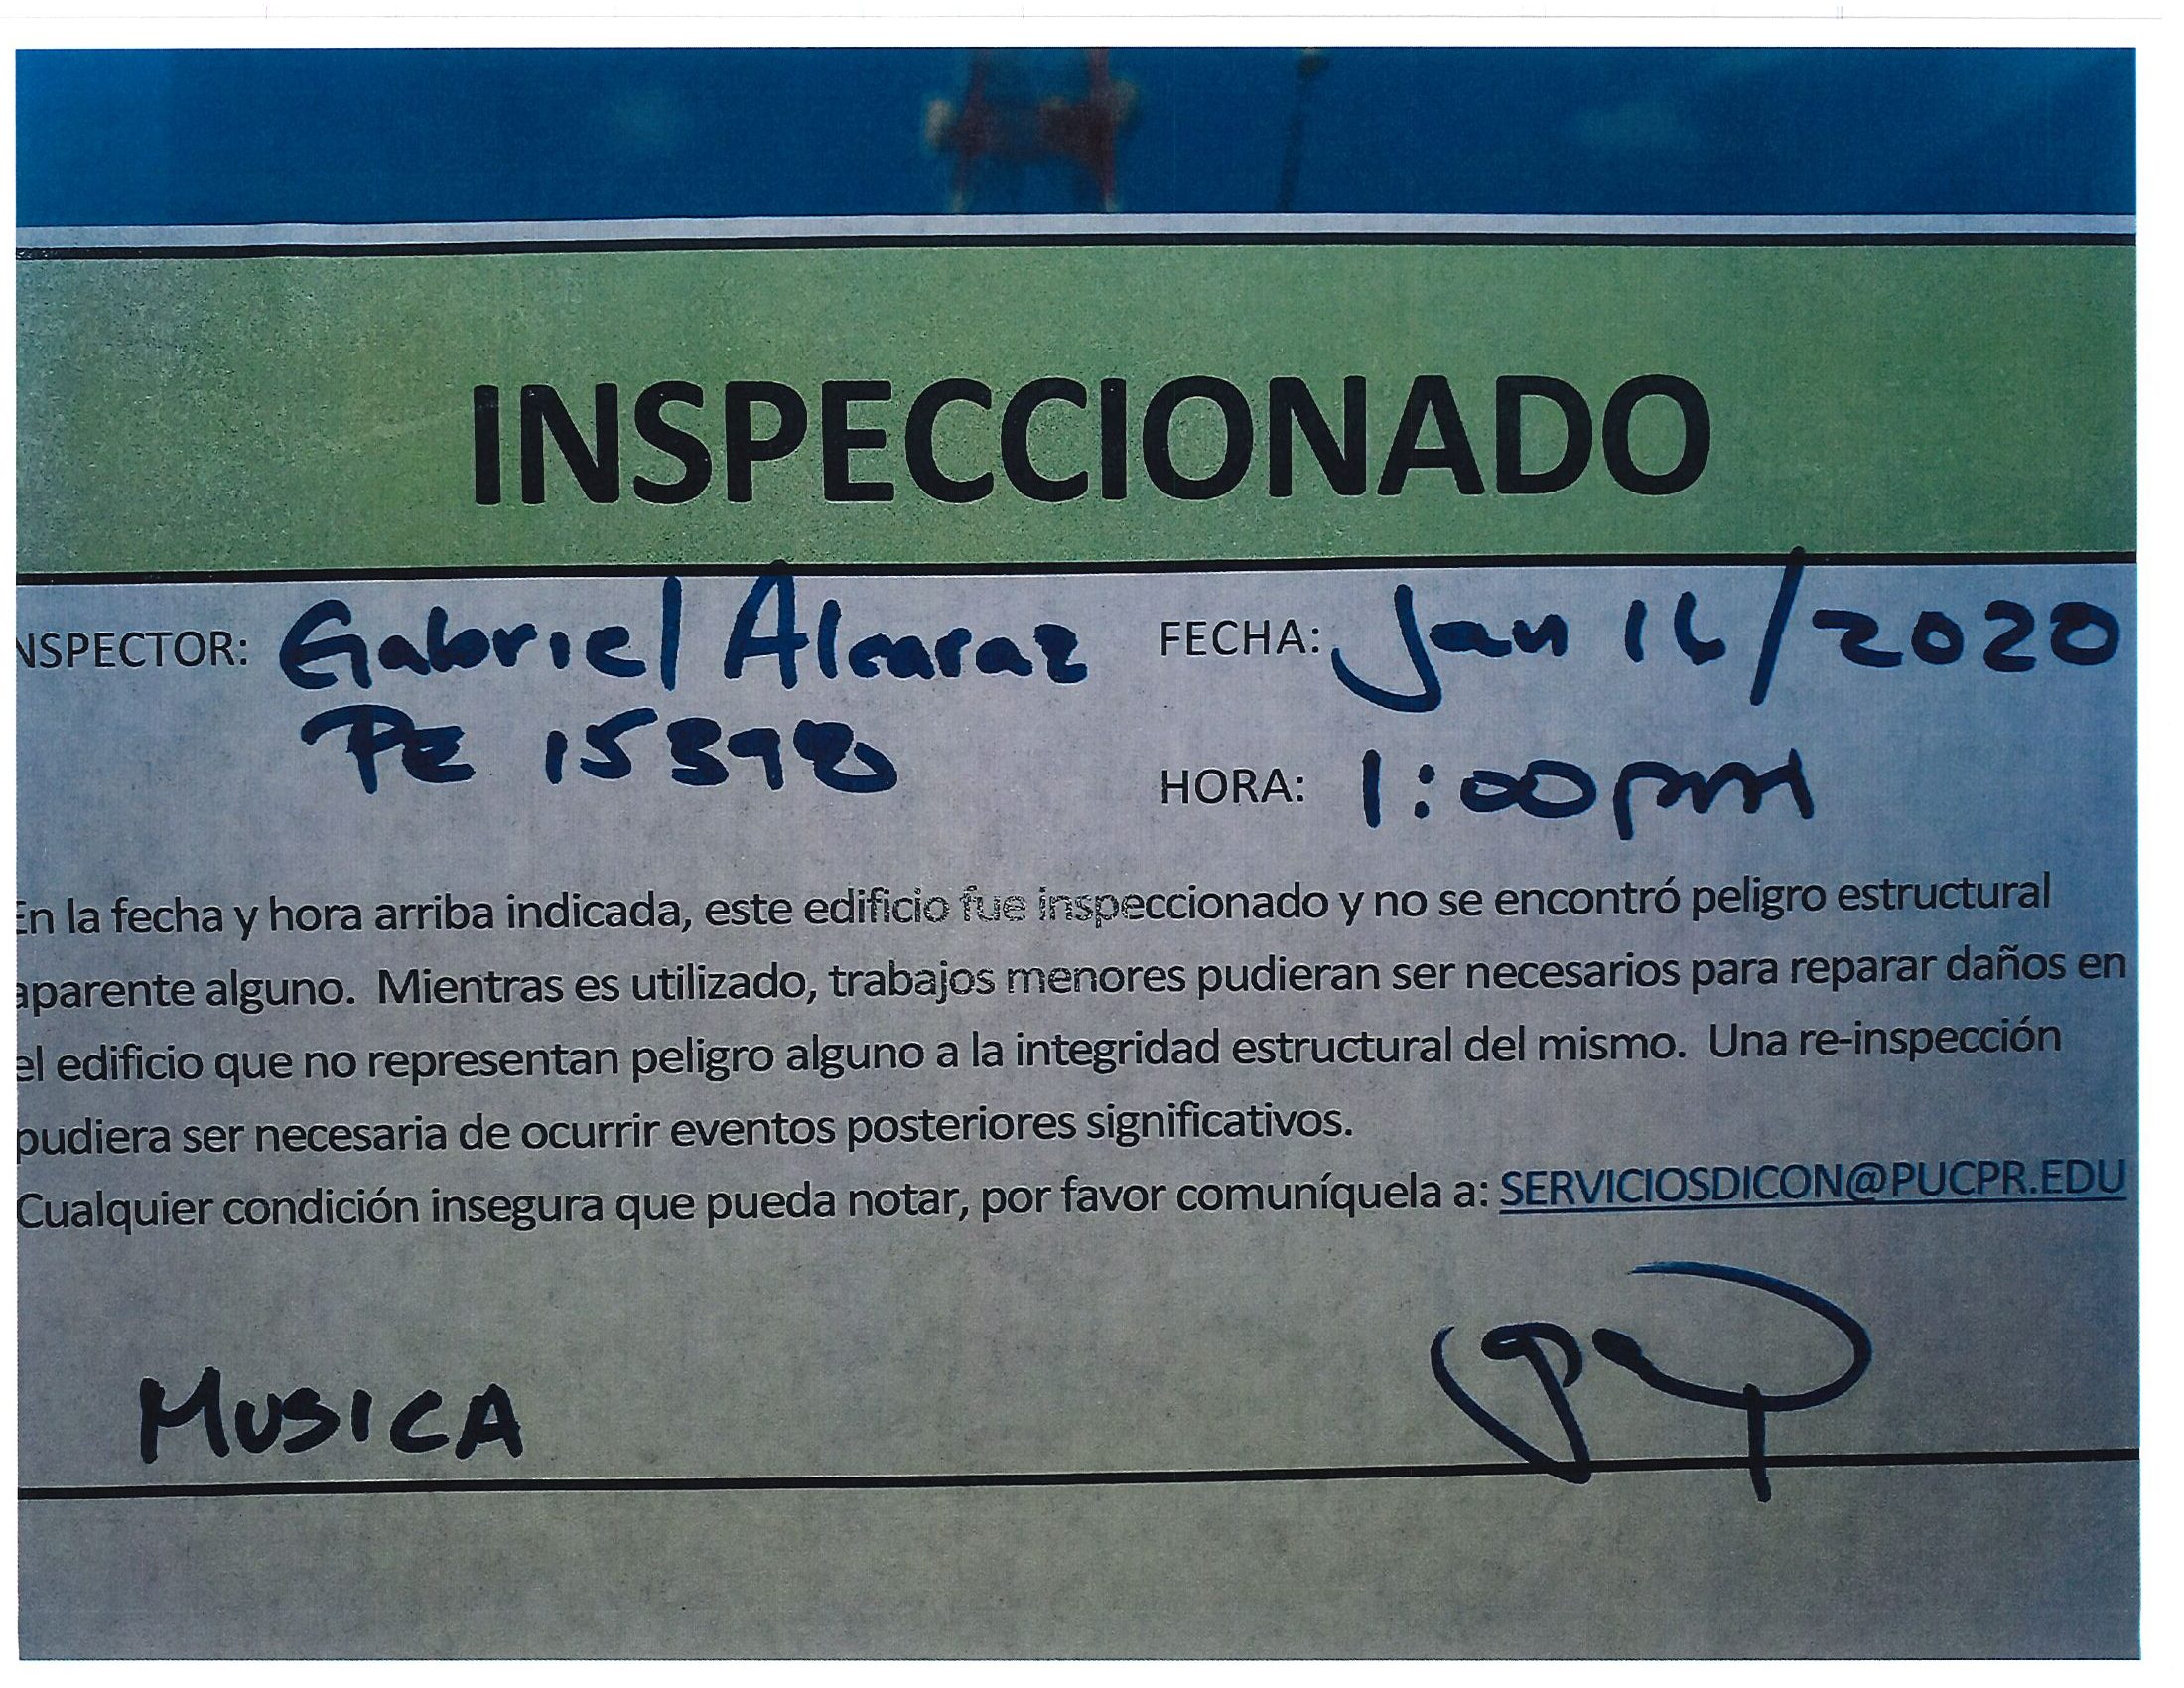 INSPECCIONADO
NSPECTOR: Gabriel Alcaraz FECHA: Jan 16/2020
PE 15398
HORA: 1:00pm
En la fecha y hora arriba indicada, este edificio fue inspeccionado y no se encontró peligro estructural
aparente alguno. Mientras es utilizado, trabajos menores pudieran ser necesarios para reparar daños en
el edificio que no representan peligro alguno a la integridad estructural del mismo. Una re-inspección
pudiera ser necesaria de ocurrir eventos posteriores significativos.
Cualquier condición insegura que pueda notar, por favor comuníquela a: SERVICIOSDICON@PUCPR.EDU
MUSICA